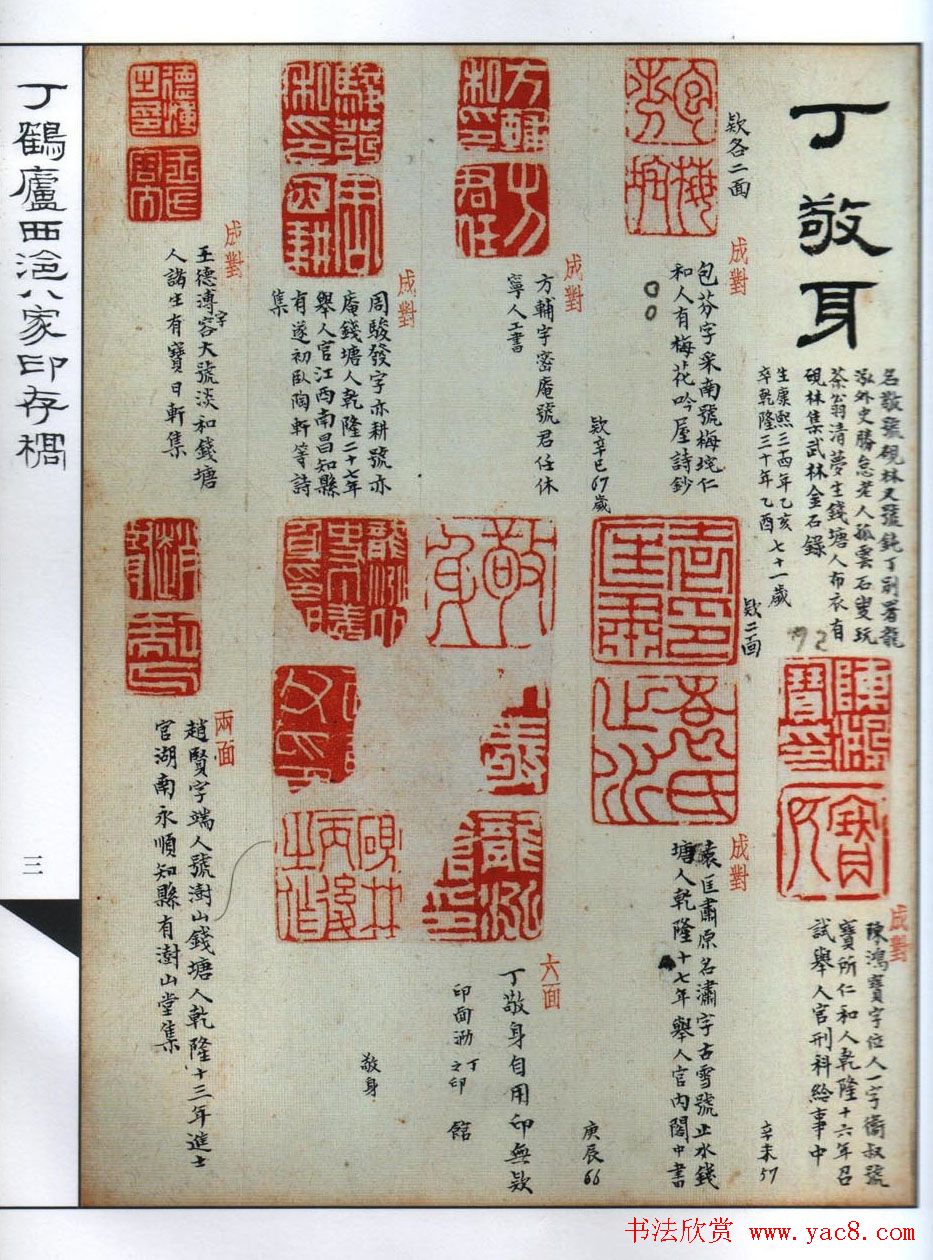 丁敬身
名敬號硯林又號鈍丁別署龍
泓外史勝怠老人孤雲石叟玩
茶翁清夢生錢塘人布衣有
硯林集武林金石錄
生康熙三四年乙亥
卒乾隆三十年乙酉 七十一歲
72
陳鴻寶印
寶所
成對
陳鴻寶字位人一字衛叔號
寶所仁和人乾隆十六年召
試舉人官刑科給事中
辛未57
欵各二面
包芬
梅垞
成對
包芬字采南號梅垞仁
和人有梅花吟屋詩鈔
欵二面
袁匡肅印
袁氏止水
成對
袁匡肅原名潚字古雪號止水錢
塘人乾隆十七年舉人官內閣中書
方輔私印
方君任
成對
方輔字密庵號君任休
寧人工書
欵辛巳67歲
敬身
硯林丙後之作
六面
丁敬身自用印無欵
印面泐
丁
之印
館
敬身
庚辰66
駿發私印
周亦耕
成對
周駿發字亦耕號亦
庵錢塘人乾隆二十七年
舉人官江西南昌知縣
有遂初臥陶軒等詩
集
德溥之印
成對
王德溥字容大號淡和錢塘
人諸生有寶日軒集
趙賢
端人
兩面
趙賢字端人號澍山錢塘人乾隆十三年進士
官湖南永順知縣有澍山堂集
丁鶴廬西泠八家印存稠
三
书法欣赏 www.yac8.com